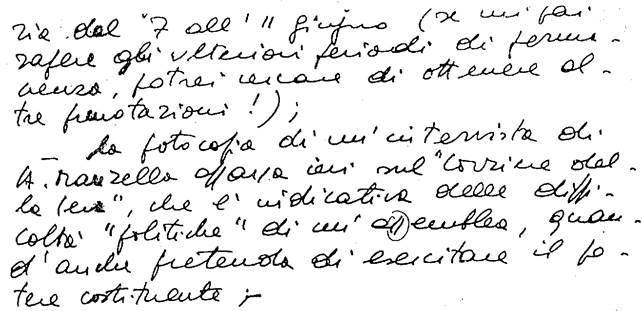 zia dal 7 all'11 giugno (se mi fai
sapere gli ulteriori periodi di perma-
nenza, potrei cercare di ottenere al-
tre prenotazioni!);
— la fotocopia di un'intervista di
A. Manzella apparsa ieri sul "Corriere del-
la Sera", che è indicativa delle diffi-
coltà "politiche" di un'assemblea, quan-
d'anche pretenda di esercitare il po-
tere costituente;